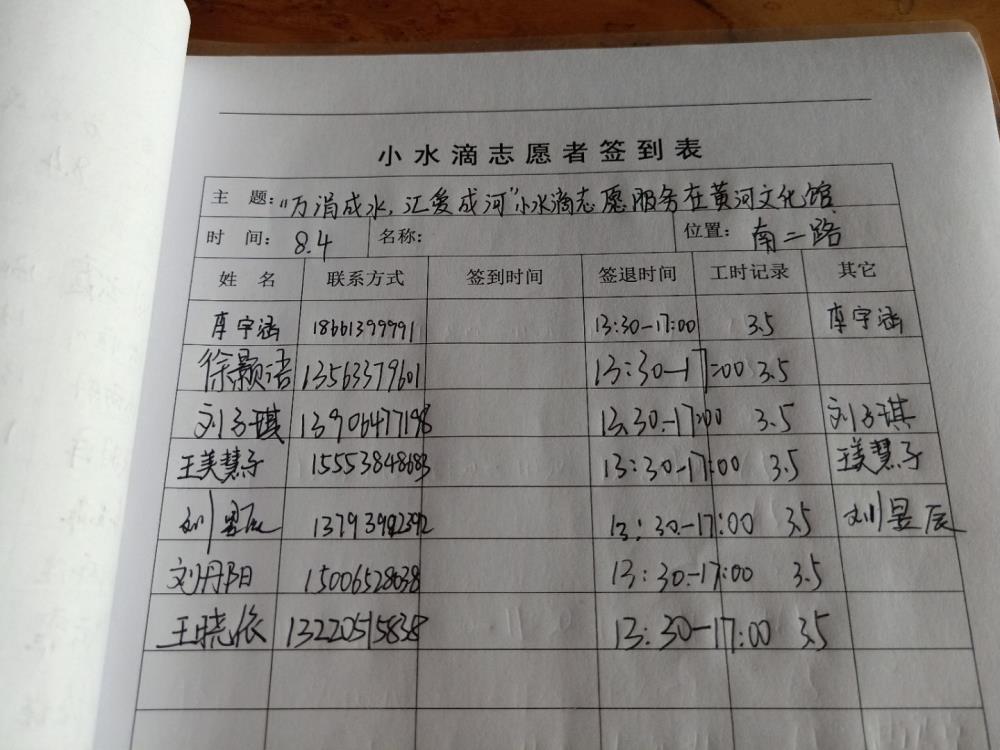 小水滴志愿者签到表
主 题: "万涓成水,汇爱成河"小水滴志愿服务在黄河文化馆
时 间: 8.4 名称: 位置: 南二路
姓 名 联系方式 签到时间 签退时间 工时记录 其它
李宇涵 18661399991 13:30-17:00 3.5 李宇涵
徐颢语 13563379601 13:30-17:00 3.5
刘子琪 13906477198 13:30-17:00 3.5 刘子琪
王美慧子 15553848683 13:30-17:00 3.5 王美慧子
刘昱辰 13:30-17:00 3.5 刘昱辰
刘丹阳 15006528638 13:30-17:00 3.5
王晓依 13220515838 13:30-17:00 3.5